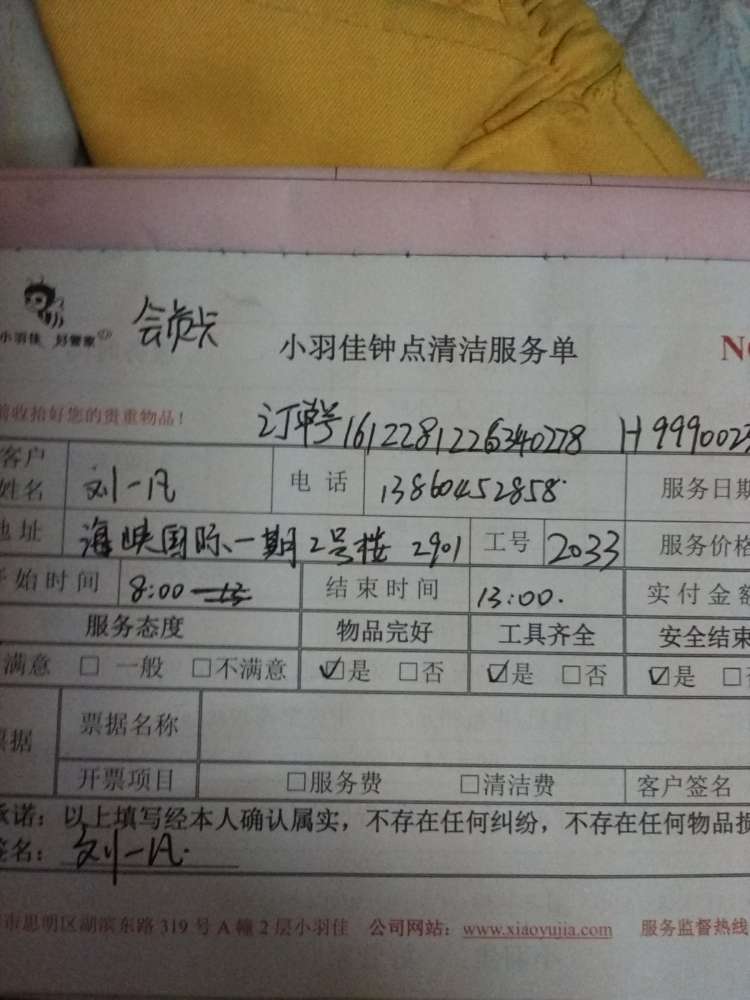 小羽佳 好管家
会员卡
小羽佳钟点清洁服务单
收拾好您的贵重物品！
订单号1612281226340278 H999002
客户姓名 刘一凡 电话 13860452858 服务日期
地址 海峡国际一期2号楼 2901 工号 2033 服务价格
开始时间 8:00 结束时间 13:00. 实付金额
服务态度 物品完好 工具齐全 安全结束
满意 □ 一般 □不满意 ☑是 □否 ☑是 □否 ☑是 □
票据 票据名称
开票项目 □服务费 □清洁费 客户签名
承诺：以上填写经本人确认属实，不存在任何纠纷，不存在任何物品损
签名：刘一凡.
市思明区湖滨东路 319 号 A 幢 2 层小羽佳 公司网站：www.xiaoyujia.com 服务监督热线